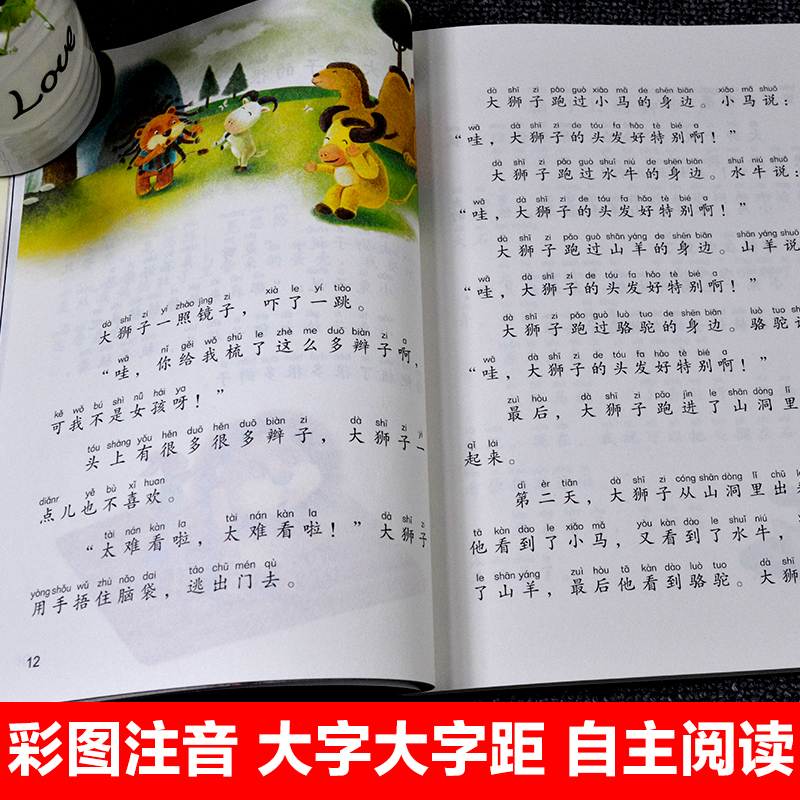 Love
dà shī zi yí zhào jìng zi xià le yí tiào
大狮子一照镜子，吓了一跳。
wā nǐ gěi wǒ shū le zhè me duō biàn zi a
“哇，你给我梳了这么多辫子啊，
kě wǒ bú shì nǚ hái ya
可我不是女孩呀！”
tóu shàng yǒu hěn duō hěn duō biàn zi dà shī zi yì
头上有很多很多辫子，大狮子一
diǎnr yě bù xǐ huan
点儿也不喜欢。
tài nán kàn la tài nán kàn la dà shī zi
“太难看啦，太难看啦！”大狮子
yòng shǒu wǔ zhù nǎo dai táo chū mén qù
用手捂住脑袋，逃出门去。
12
dà shī zi pǎo guò xiǎo mǎ de shēn biān xiǎo mǎ shuō
大狮子跑过小马的身边。小马说：
wā dà shī zi de tóu fa hǎo tè bié a
“哇，大狮子的头发好特别啊！”
dà shī zi pǎo guò shuǐ niú de shēn biān shuǐ niú shuō
大狮子跑过水牛的身边。水牛说：
wā dà shī zi de tóu fa hǎo tè bié a
“哇，大狮子的头发好特别啊！”
dà shī zi pǎo guò shān yáng de shēn biān shān yáng shuō
大狮子跑过山羊的身边。山羊说
wā dà shī zi de tóu fa hǎo tè bié a
“哇，大狮子的头发好特别啊！”
dà shī zi pǎo guò luò tuo de shēn biān luò tuo
大狮子跑过骆驼的身边。骆驼
wā dà shī zi de tóu fa hǎo tè bié a
“哇，大狮子的头发好特别啊！”
zuì hòu dà shī zi pǎo jìn le shān dòng lǐ
最后，大狮子跑进了山洞里
qǐ lái
起来。
dì èr tiān dà shī zi cóng shān dòng lǐ chū
第二天，大狮子从山洞里出
tā kàn dào le xiǎo mǎ yòu kàn dào le shuǐ niú
他看到了小马，又看到了水牛，
le shān yáng zuì hòu tā kàn dào luò tuo dà shī
了山羊，最后他看到骆驼。大狮
彩图注音 大字大字距 自主阅读